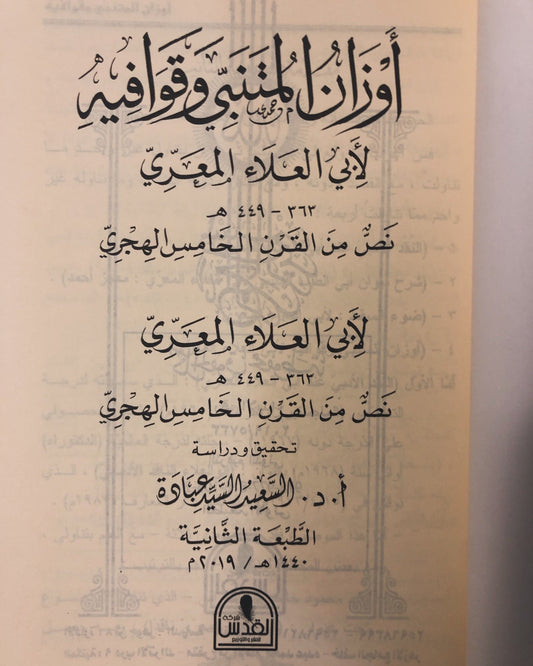 أَوْزَانُ المُتَنَبِّي وَقَوَافِيهِ
لِأَبِي العَلَاءِ المَعَرِّيّ
٣٦٣ - ٤٤٩ هـ
نَصٌّ مِنَ القَرْنِ الخَامِسِ الهِجْرِيّ
لِأَبِي العَلَاءِ المَعَرِّيّ
٣٦٣ - ٤٤٩ هـ
نَصٌّ مِنَ القَرْنِ الخَامِسِ الهِجْرِيّ
تحقيق ودراسة
أ. د. السَّعِيدُ السَّيِّد عِبَادَة
الطَّبْعَة الثَّانِيَة
١٤٤٠هـ / ٢٠١٩ م
شركة
القدس
للنشر والتوزيع